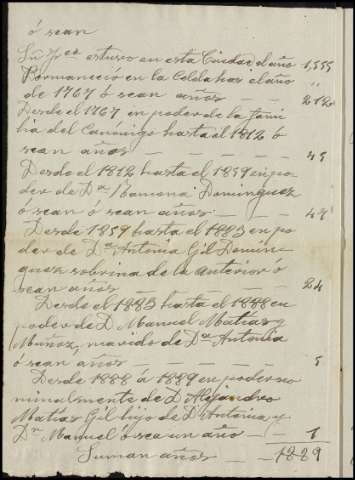 ó sean
Sn Jn estuvo en esta Ciudad el año 1,555
Permaneció en la Celda has el año
de 1767 ó sean años — — 212
Desde el 1767 en poder de la fami
lia del Canónigo hasta el 1812 ó
sean años — — — — 45
Desde el 1812 hasta el 1859 en po
der de Dª Ramona Dominguez
ó sean ó sean años — — — 47
Desde 1859 hasta el 1883 en po
der de Dª Antonia Gil Domin
guez sobrina de la anterior ó
sean años — — — — 24
Desde el 1883 hasta el 1888 en
poder de D Manuel Matías y
Muñoz, marido de Dª Antonia
ó sean años — — — — 5
Desde 1888 á 1889 en poder no
minalmente de D Alejandro
Matías Gil hijo de Dª Antonia, y
Dn Manuel ó sea un año — — 1
Suman años — — 1889